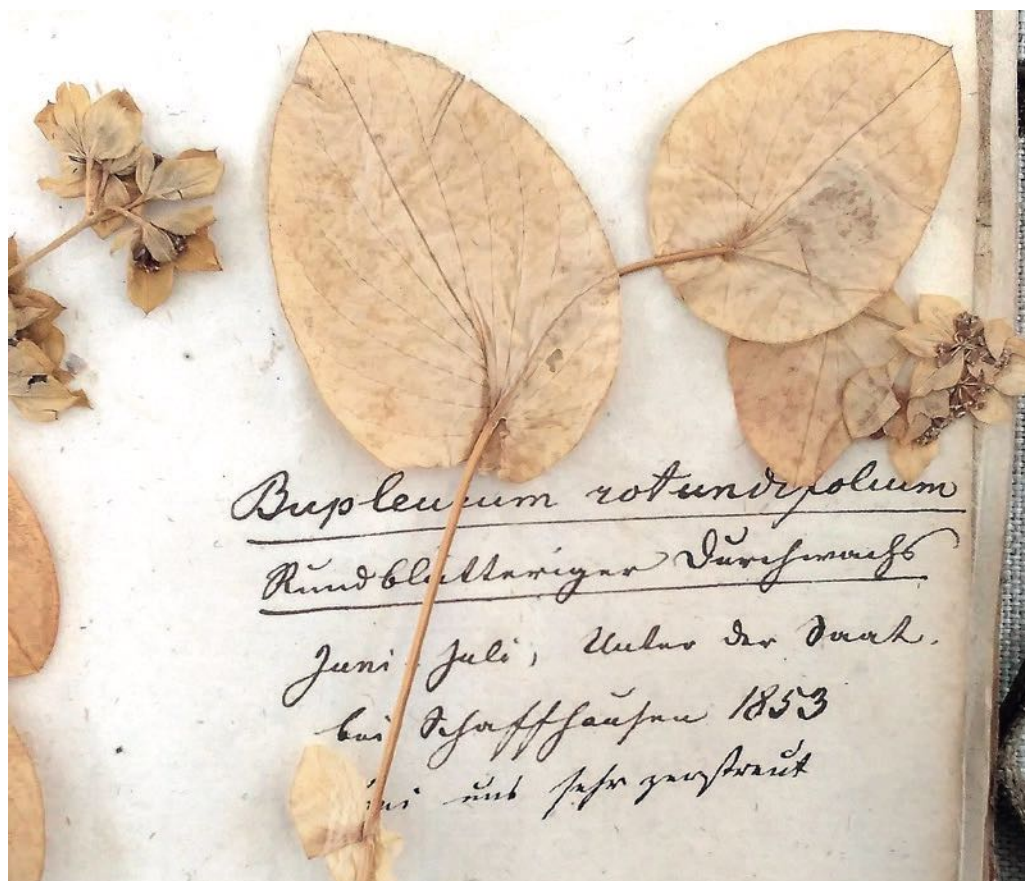 Bupleurum rotundifolium
Rundblätteriger Durchwachs
Juni. Juli, Unter der Saat.
bei Schaffhausen 1853
bei uns sehr zerstreut